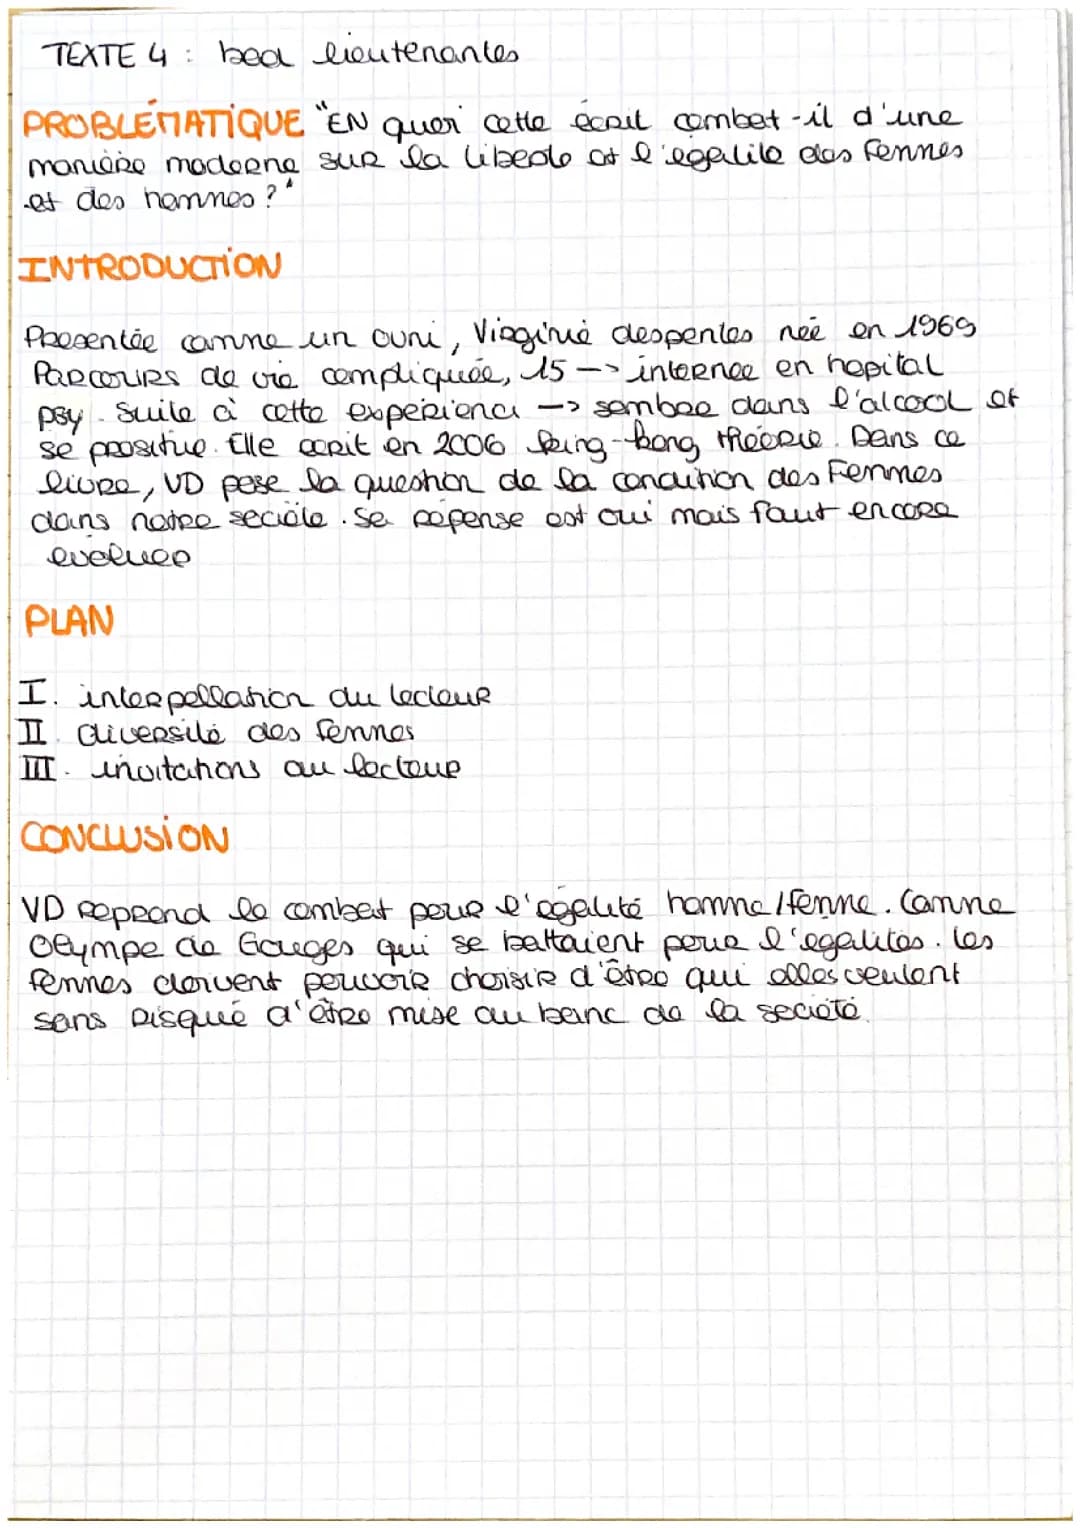 TEXTE 4 : bad lieutenantes
PROBLÉMATIQUE "EN quoi cette écrit combat-il d'une
manière moderne sur la liberté et l'égalité des Femmes
et des hommes ?"
INTRODUCTION
Presentée comme un ovni, Virginie despentes née en 1969
PARCOURS de vie compliquée, 15 -> internée en hopital
psy. Suite à cette experience -> sombre dans l'alcool et
se prostitue. Elle ecrit en 2006 king-kong théorie. Dans ce
livre, VD pose la question de la condition des Femmes
dans notre société. Se réponse est oui mais faut encore
evoluer
PLAN
I. interpellation du lecteur
II. diversité des femmes
III. invitations au lecteur
CONCLUSION
VD reprend le combat pour l'égalité homme/femme. Comme
Olympe de Gouges qui se battaient pour l'egalités. les
femmes doivent pouvoir choisir d'être qui elles veulent
sans risqué d'être mise au banc de la société.